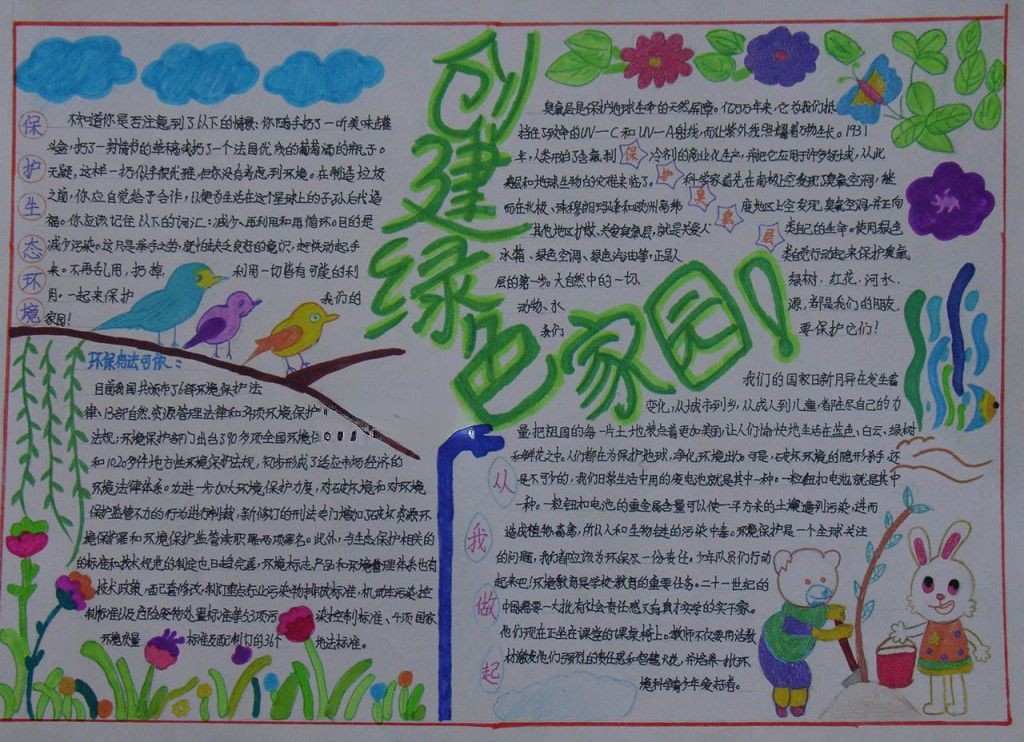 创建绿色家园!
保护生态环境
不知道你是否注意到了以下的情景:你随手扔了一听美味罐
头盒;扔了一封情书的草稿或扔了一个法国优质的葡萄酒的瓶子。
无疑,这样一扔似乎很优雅,但你没有考虑到环境。在制造垃圾
之前,你应自觉给予合作,以便为生活在这个星球上的子孙后代造
福。你应该记住以下的词汇:减少、再利用和再循环。目的是
减少污染。这只是举手之劳,就怕缺乏良好的意识,赶快动起手
来。不再乱用,扔掉,利用一切皆有可能的利
用。一起来保护我们的
家园!
环保有法可依:
目前我国共颁布了6部环境保护法
律、13部自然资源管理法律和34项环境保护
法规;环境保护部门出台了90多项全国环境
和1020多件地方性环境保护法规,初步形成了适应市场经济的
环境法律体系。为进一步加大环境保护力度,对破坏环境和对环境
保护监管不力的行为进行制裁,新修订的刑法专门增加了破坏资源环
境保护罪和环境保护监管渎职罪两项罪名。此外,与生态保护相关的
的标准和技术规范的制定也日趋完善,环境标志产品和环境管理体系也有
技术政策,配套修改,我们重点行业污染物排放标准,机动车污染控
制标准以及危险废物处置标准等53项污染控制标准、4项国家
环境质量标准及配制订的36个地法标准。
保护臭氧层
臭氧层是保护地球生命的天然屏障。亿万年来,它为我们抵
挡住了致命的UV—C和UV—A射线,而让紫外线照耀着万物生长。1931
年,人类开始了含氯制冷剂的商业化生产,并把它应用于许多领域,从此
臭层和地球生物的灾难来临了。科学家首先在南极上空发现了臭氧空洞,继
而在北极、珠穆朗玛峰和欧洲高纬度地区上空发现,臭氧空洞,并正向
其他地区扩散,关爱臭氧层,就是关爱人类自己的生命。使用绿色
冰箱、绿色空调、绿色汽油等,正是人类自觉行动起来保护臭氧
层的第一步。大自然中的一切,绿树,红花,河水,
动物、水源,都是我们的朋友,
我们要保护它们!
从我做起
我们的国家日新月异在发生着
变化,从城市到乡,从成人到儿童,都在尽自己的力
量把祖国的每一片土地装点着更加美丽,让人们愉快地生活在蓝色、白云、绿树
和鲜花之中。人们都在为保护地球,净化环境出力。可是,破坏环境的隐形杀手还
是不可少的,我们日常生活中用的废电池就是其中一种。一粒纽扣电池就是其中
一种。一粒纽扣电池的重金属含量可以使一平方米的土壤遭到污染,进而
造成植物、禽畜,所以人和生物链的污染中毒。环境保护是一个全球关注
的问题,我们都应该为环保尽一份责任。少年队员们行动
起来吧!环境教育是学校教育的重要任务。二十一世纪的
中国需要一大批有社会责任感又有真才实学的实干家。
他们现在正坐在课堂的课桌椅上。教师不仅要用活教
材激发他们强烈的责任感和智慧火花,并培养一批环
境科学青少年爱好者。